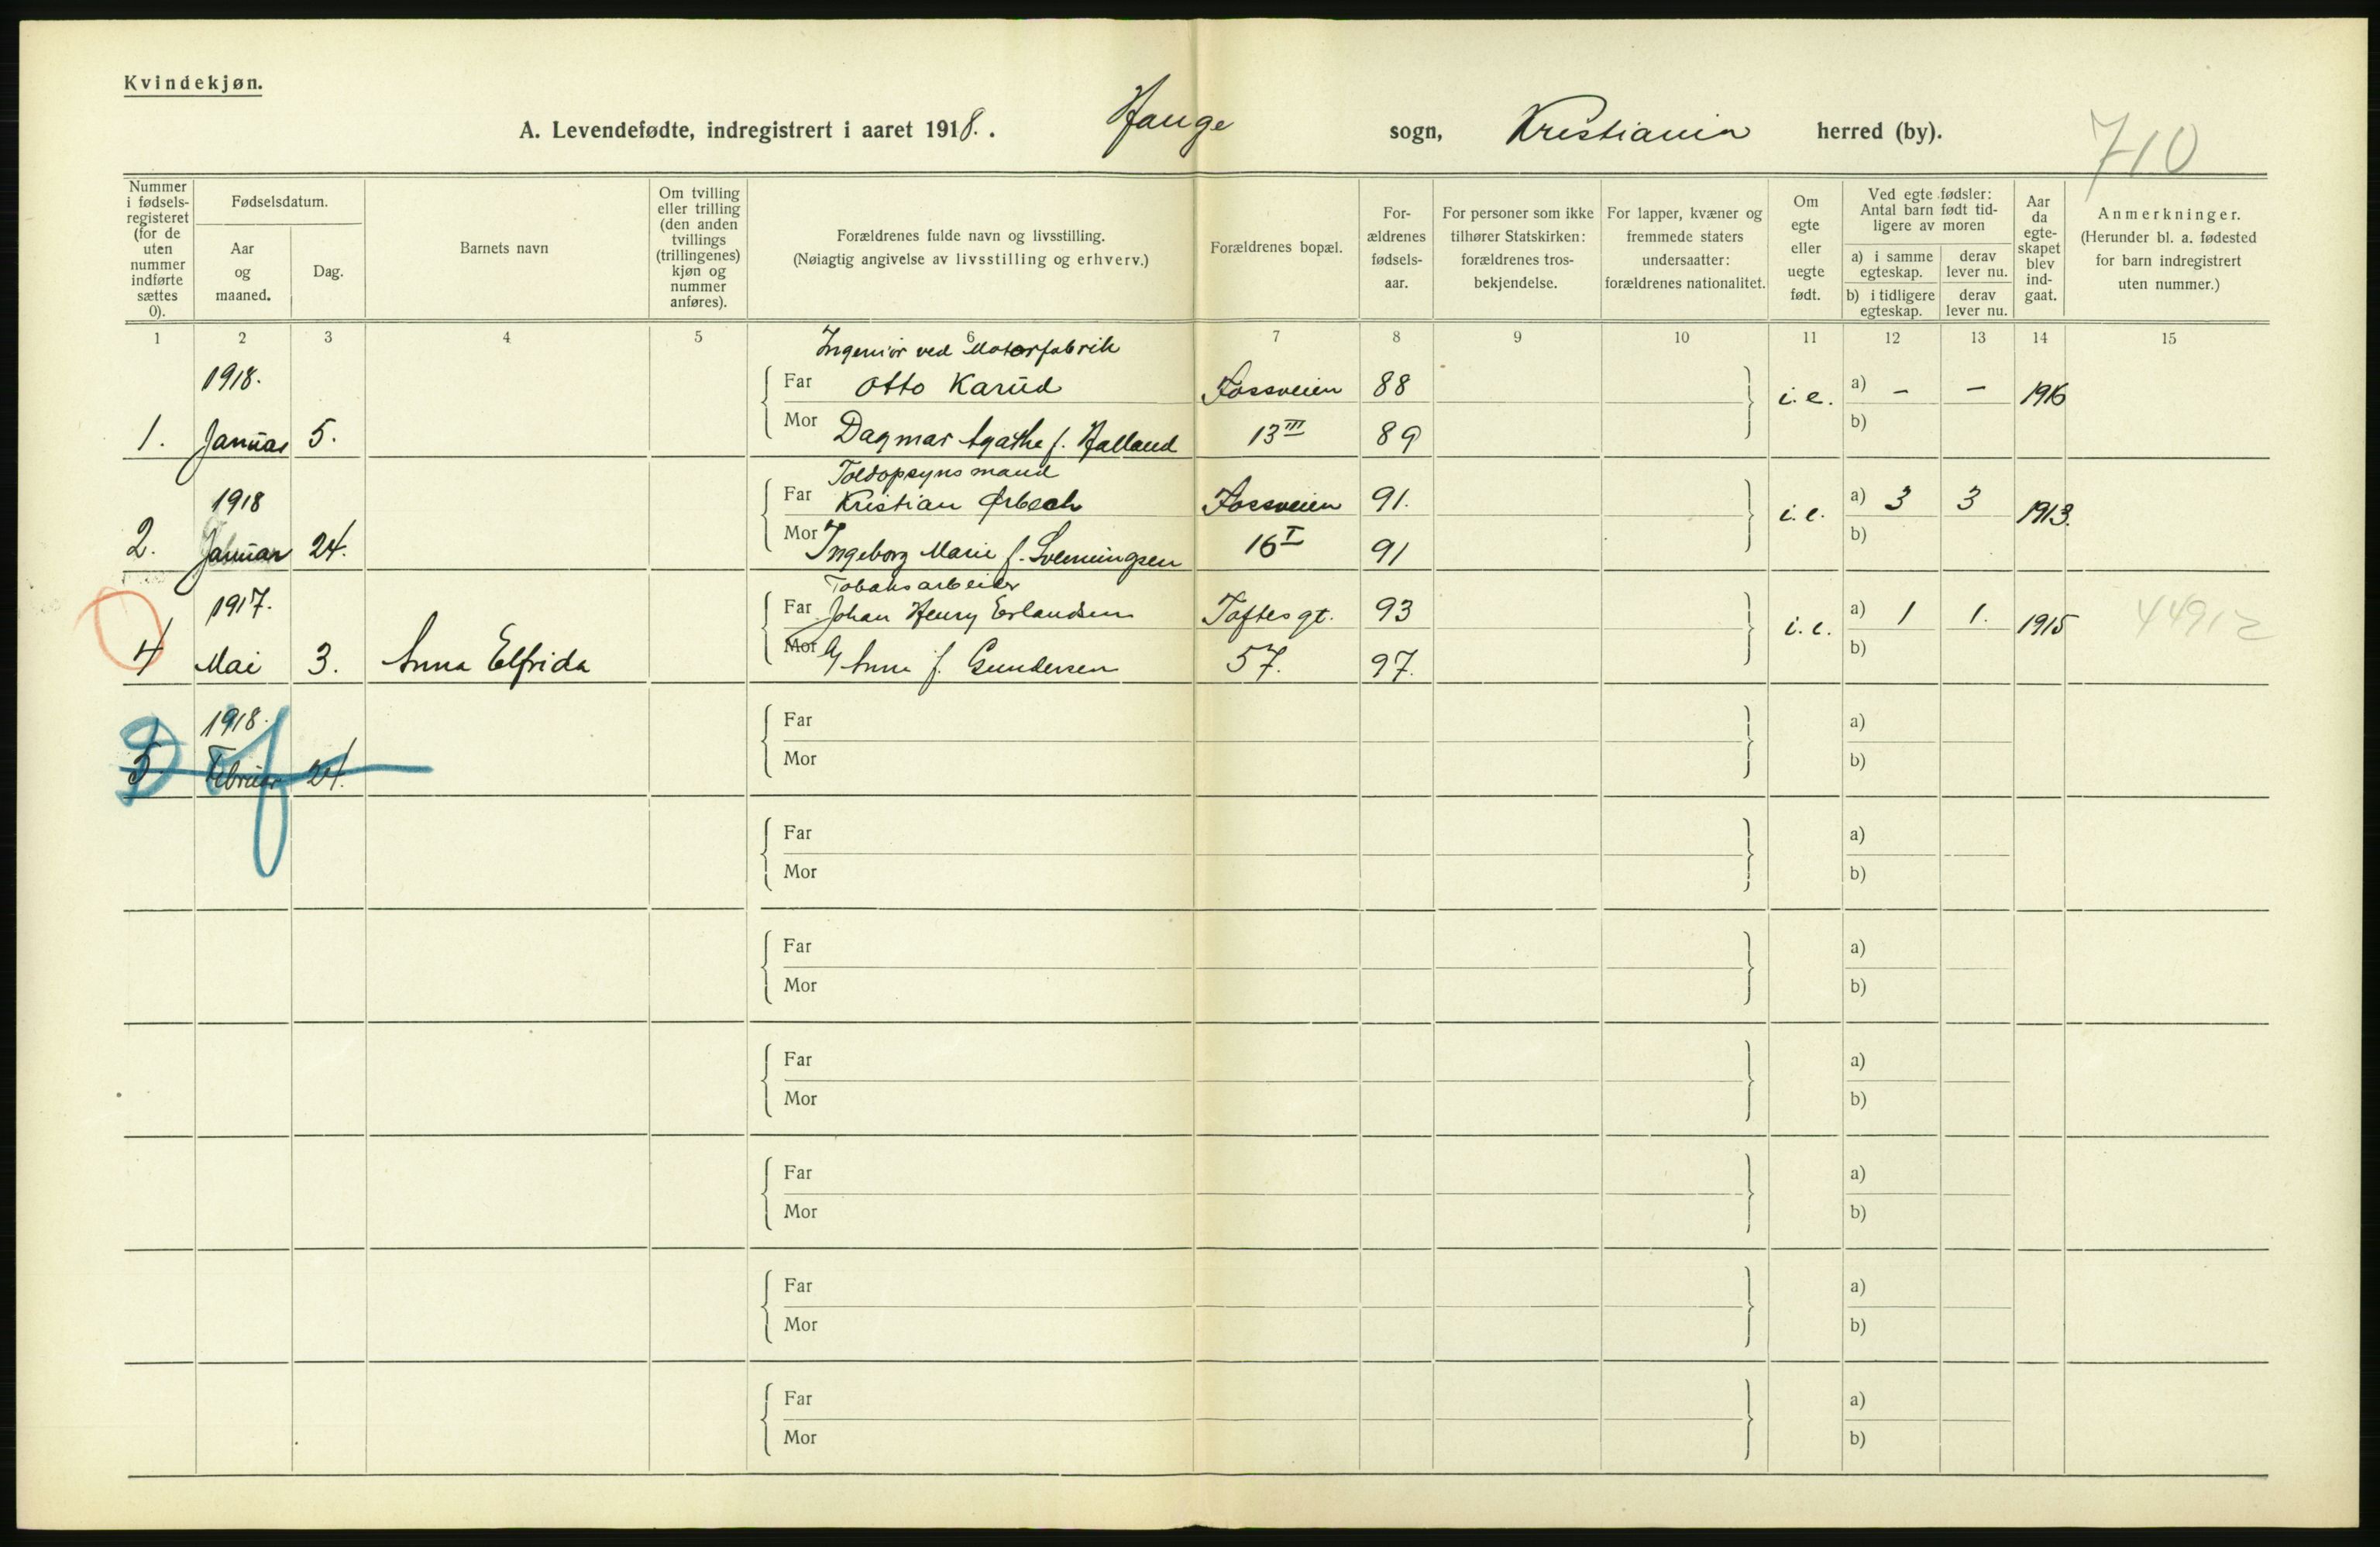 Kvindekjøn.
A. Levendefødte, indregistrert i aaret 1918. . Hauge sogn, Kristiania herred (by).
710
Nummer i fødsels-registeret (for de uten nummer indførte sættes 0).
Fødselsdatum.
Aar og maaned.
Dag.
Barnets navn
Om tvilling eller trilling (den anden tvillings (trillingenes) kjøn og nummer anføres).
Forældrenes fulde navn og livsstilling.
(Nøiagtig angivelse av livsstilling og erhverv.)
Forældrenes bopæl.
For-ældrenes fødsels-aar.
For personer som ikke tilhører Statskirken: forældrenes tros-bekjendelse.
For lapper, kvæner og fremmede staters undersaatter: forældrenes nationalitet.
Om egte eller uegte født.
Ved egte fødsler: Antal barn født tid-ligere av moren
a) i samme egteskap.
derav lever nu.
b) i tidligere egteskap.
derav lever nu.
Aar da egte-skapet blev ind-gaat.
Anmerkninger.
(Herunder bl. a. fødested for barn indregistrert uten nummer.)
1 2 3 4 5 6 7 8 9 10 11 12 13 14 15
Ingeniør ved Motorfabrik
1918. Far Otto Karud Fossveien 88 i. e. a) – – 1916
1. Januar 5. Mor Dagmar Agathe f. Halland 13 III 89 b)
Toldopsynsmand
1918 Far Kristian Ørbech Fossveien 91. i. e. a) 3 3 1913.
2. Januar 24. Mor Ingeborg Marie f. Svenningsen 16 I 91 b)
Tobaksarbeider
1917. Far Johan Henry Erlandsen Toftesgt. 93 i. e. a) 1 1. 1915 44912
4 Mai 3. Anna Elfrida Mor Anna f. Gundersen 57. 97. b)
1918. Far a)
5 Februar 24. Mor b)
Far a)
Mor b)
Far a)
Mor b)
Far a)
Mor b)
Far a)
Mor b)
Far a)
Mor b)
Far a)
Mor b)